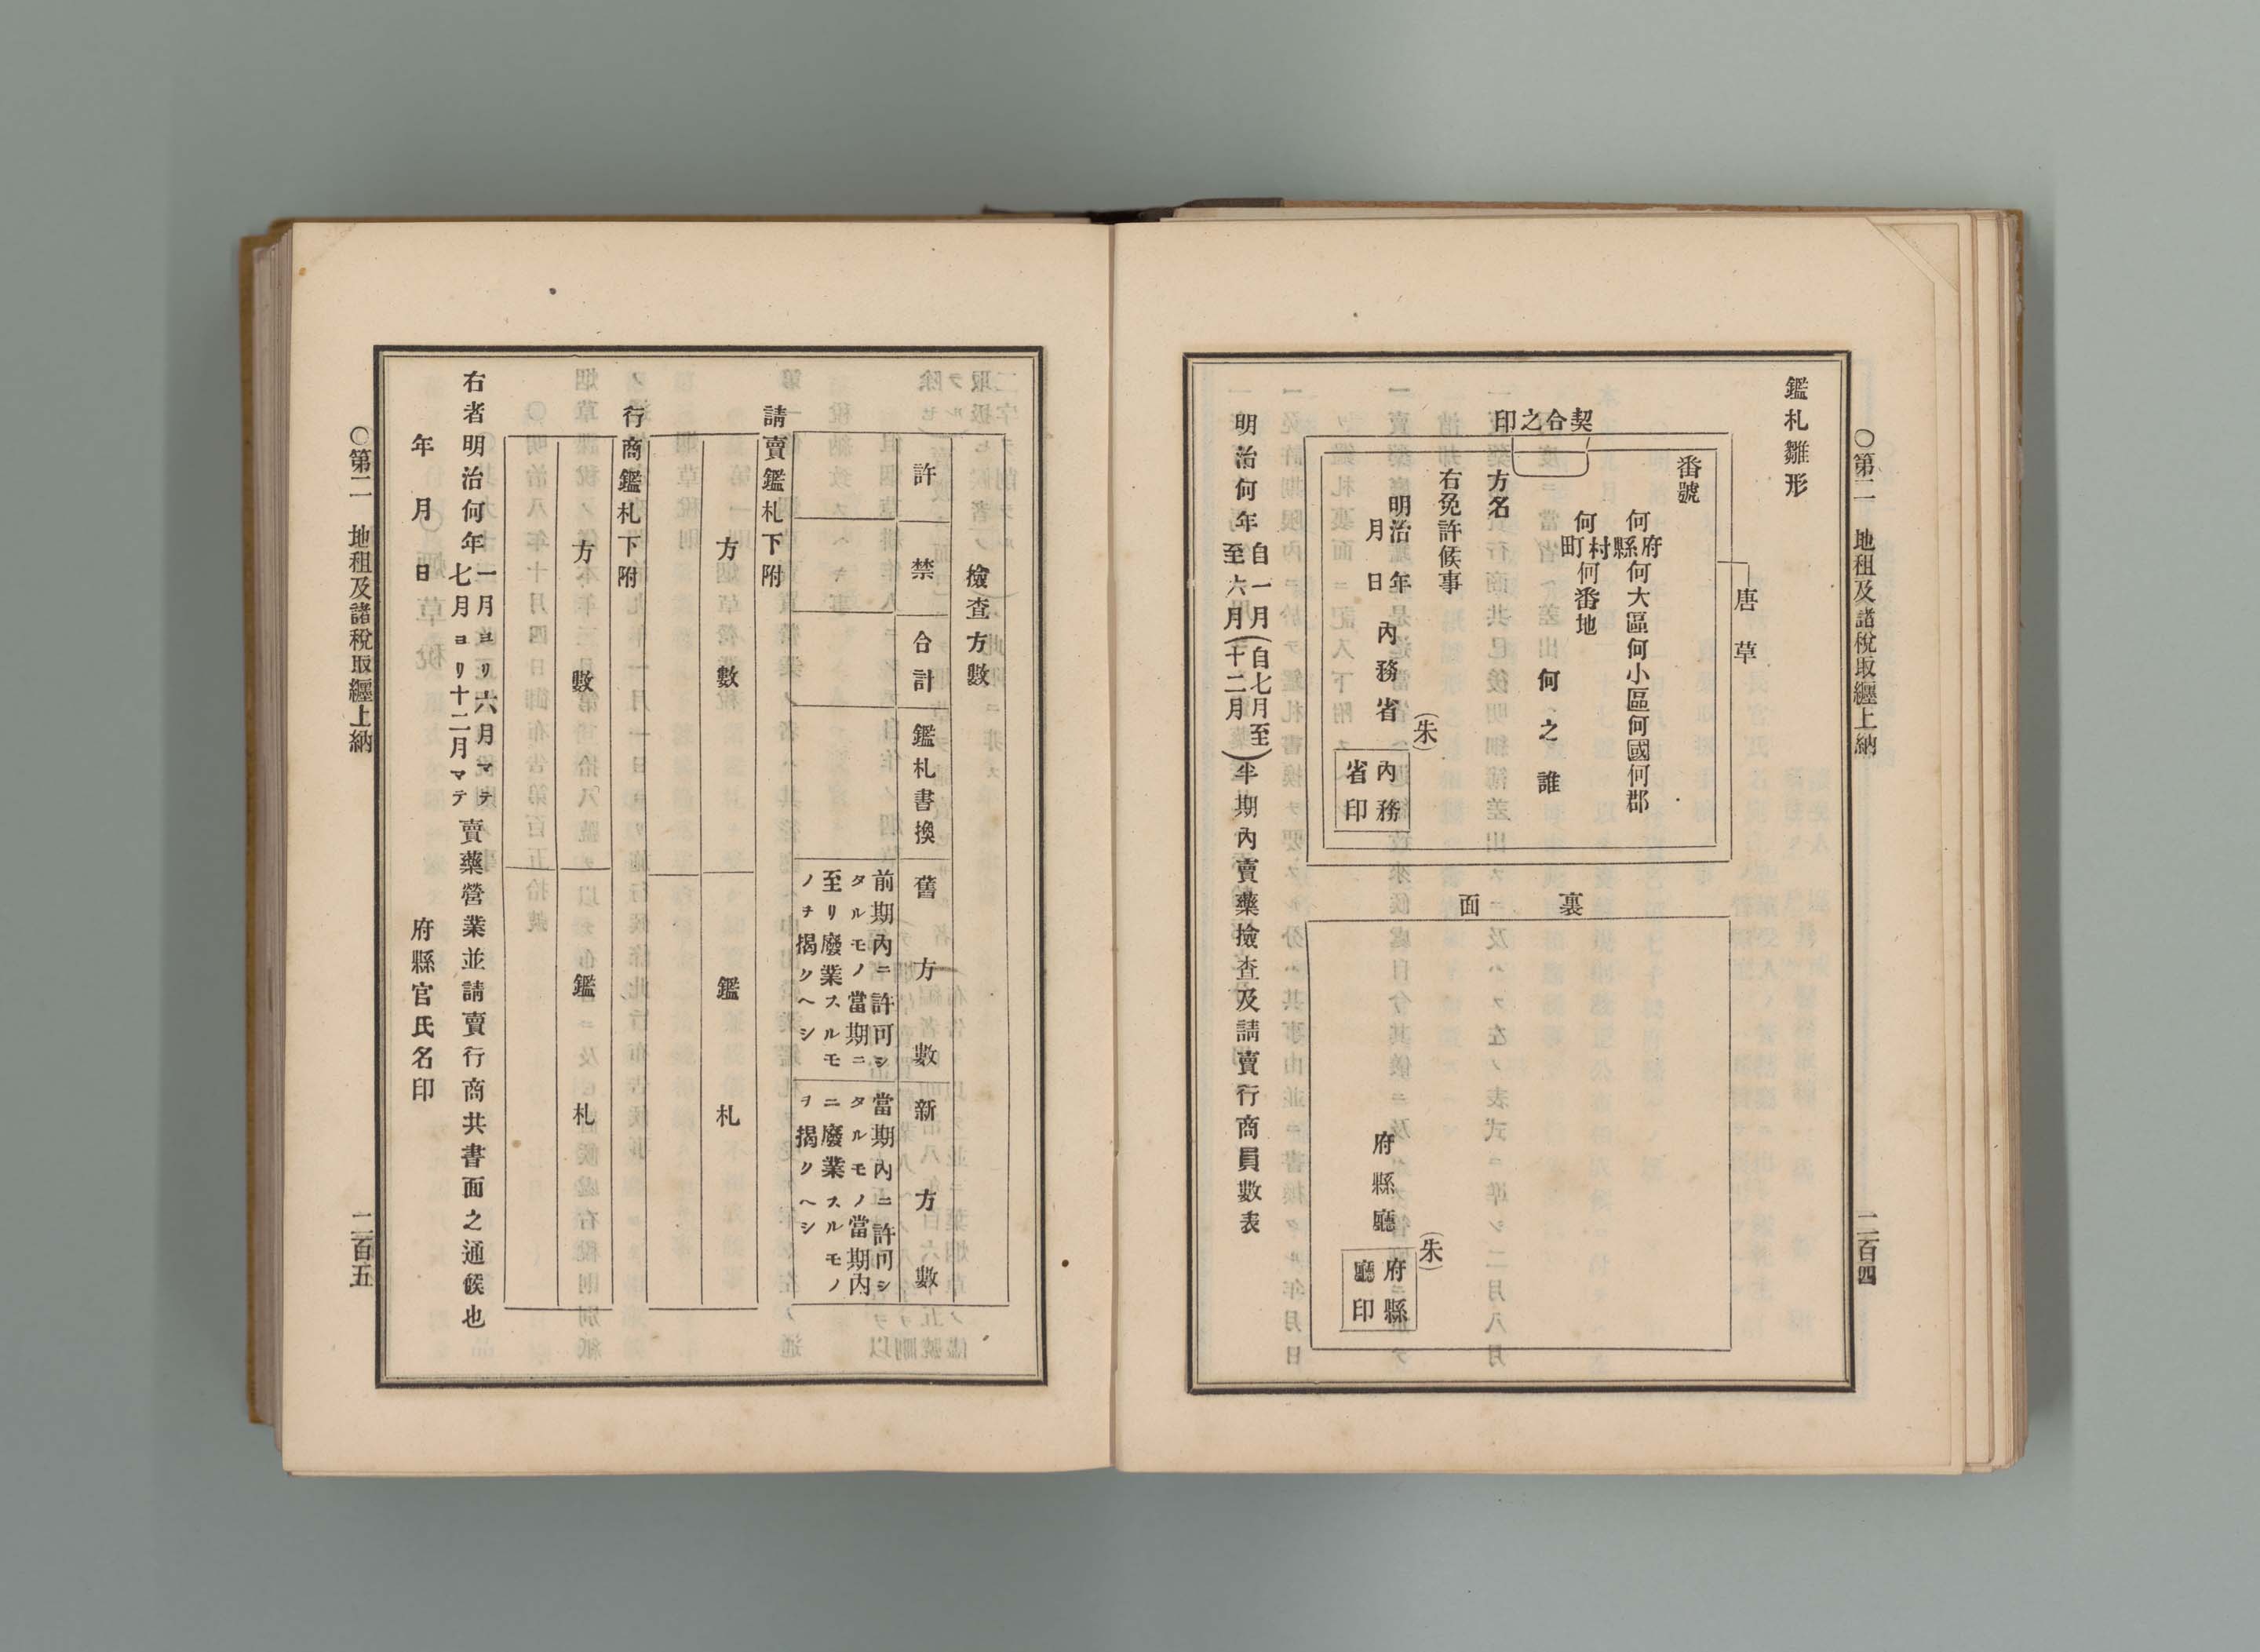 〇第二　地租及諸税取纒上納
二百四
鑑札雛形
唐草
契合之印
番號
何府縣何大區何小區何國何郡
何町村何番地
何之誰
方名
右免許候事
明治　年　月　日
內務省
(朱)
內務省印
裏面
府縣廳
(朱)
府縣廳印
明治何年自一月至六月(自七月至十二月)半期內賣藥撿查及請賣行商員數表
撿查方數
許
禁
合計
鑑札書換
舊方數
新方數
前期內ニ許可シタルモノ當期ニ至リ廢業スルモノヲ揭クヘシ
當期內ニ許可シタルモノ當期內ニ廢業スルモノヲ揭クヘシ
請賣鑑札下附
方數
鑑札
行商鑑札下附
方數
鑑札
右者明治何年一月ヨリ六月マテ七月ヨリ十二月マテ賣藥營業並請賣行商共書面之通候也
年月日
府縣官氏名印
〇第二　地租及諸税取纒上納
二百五